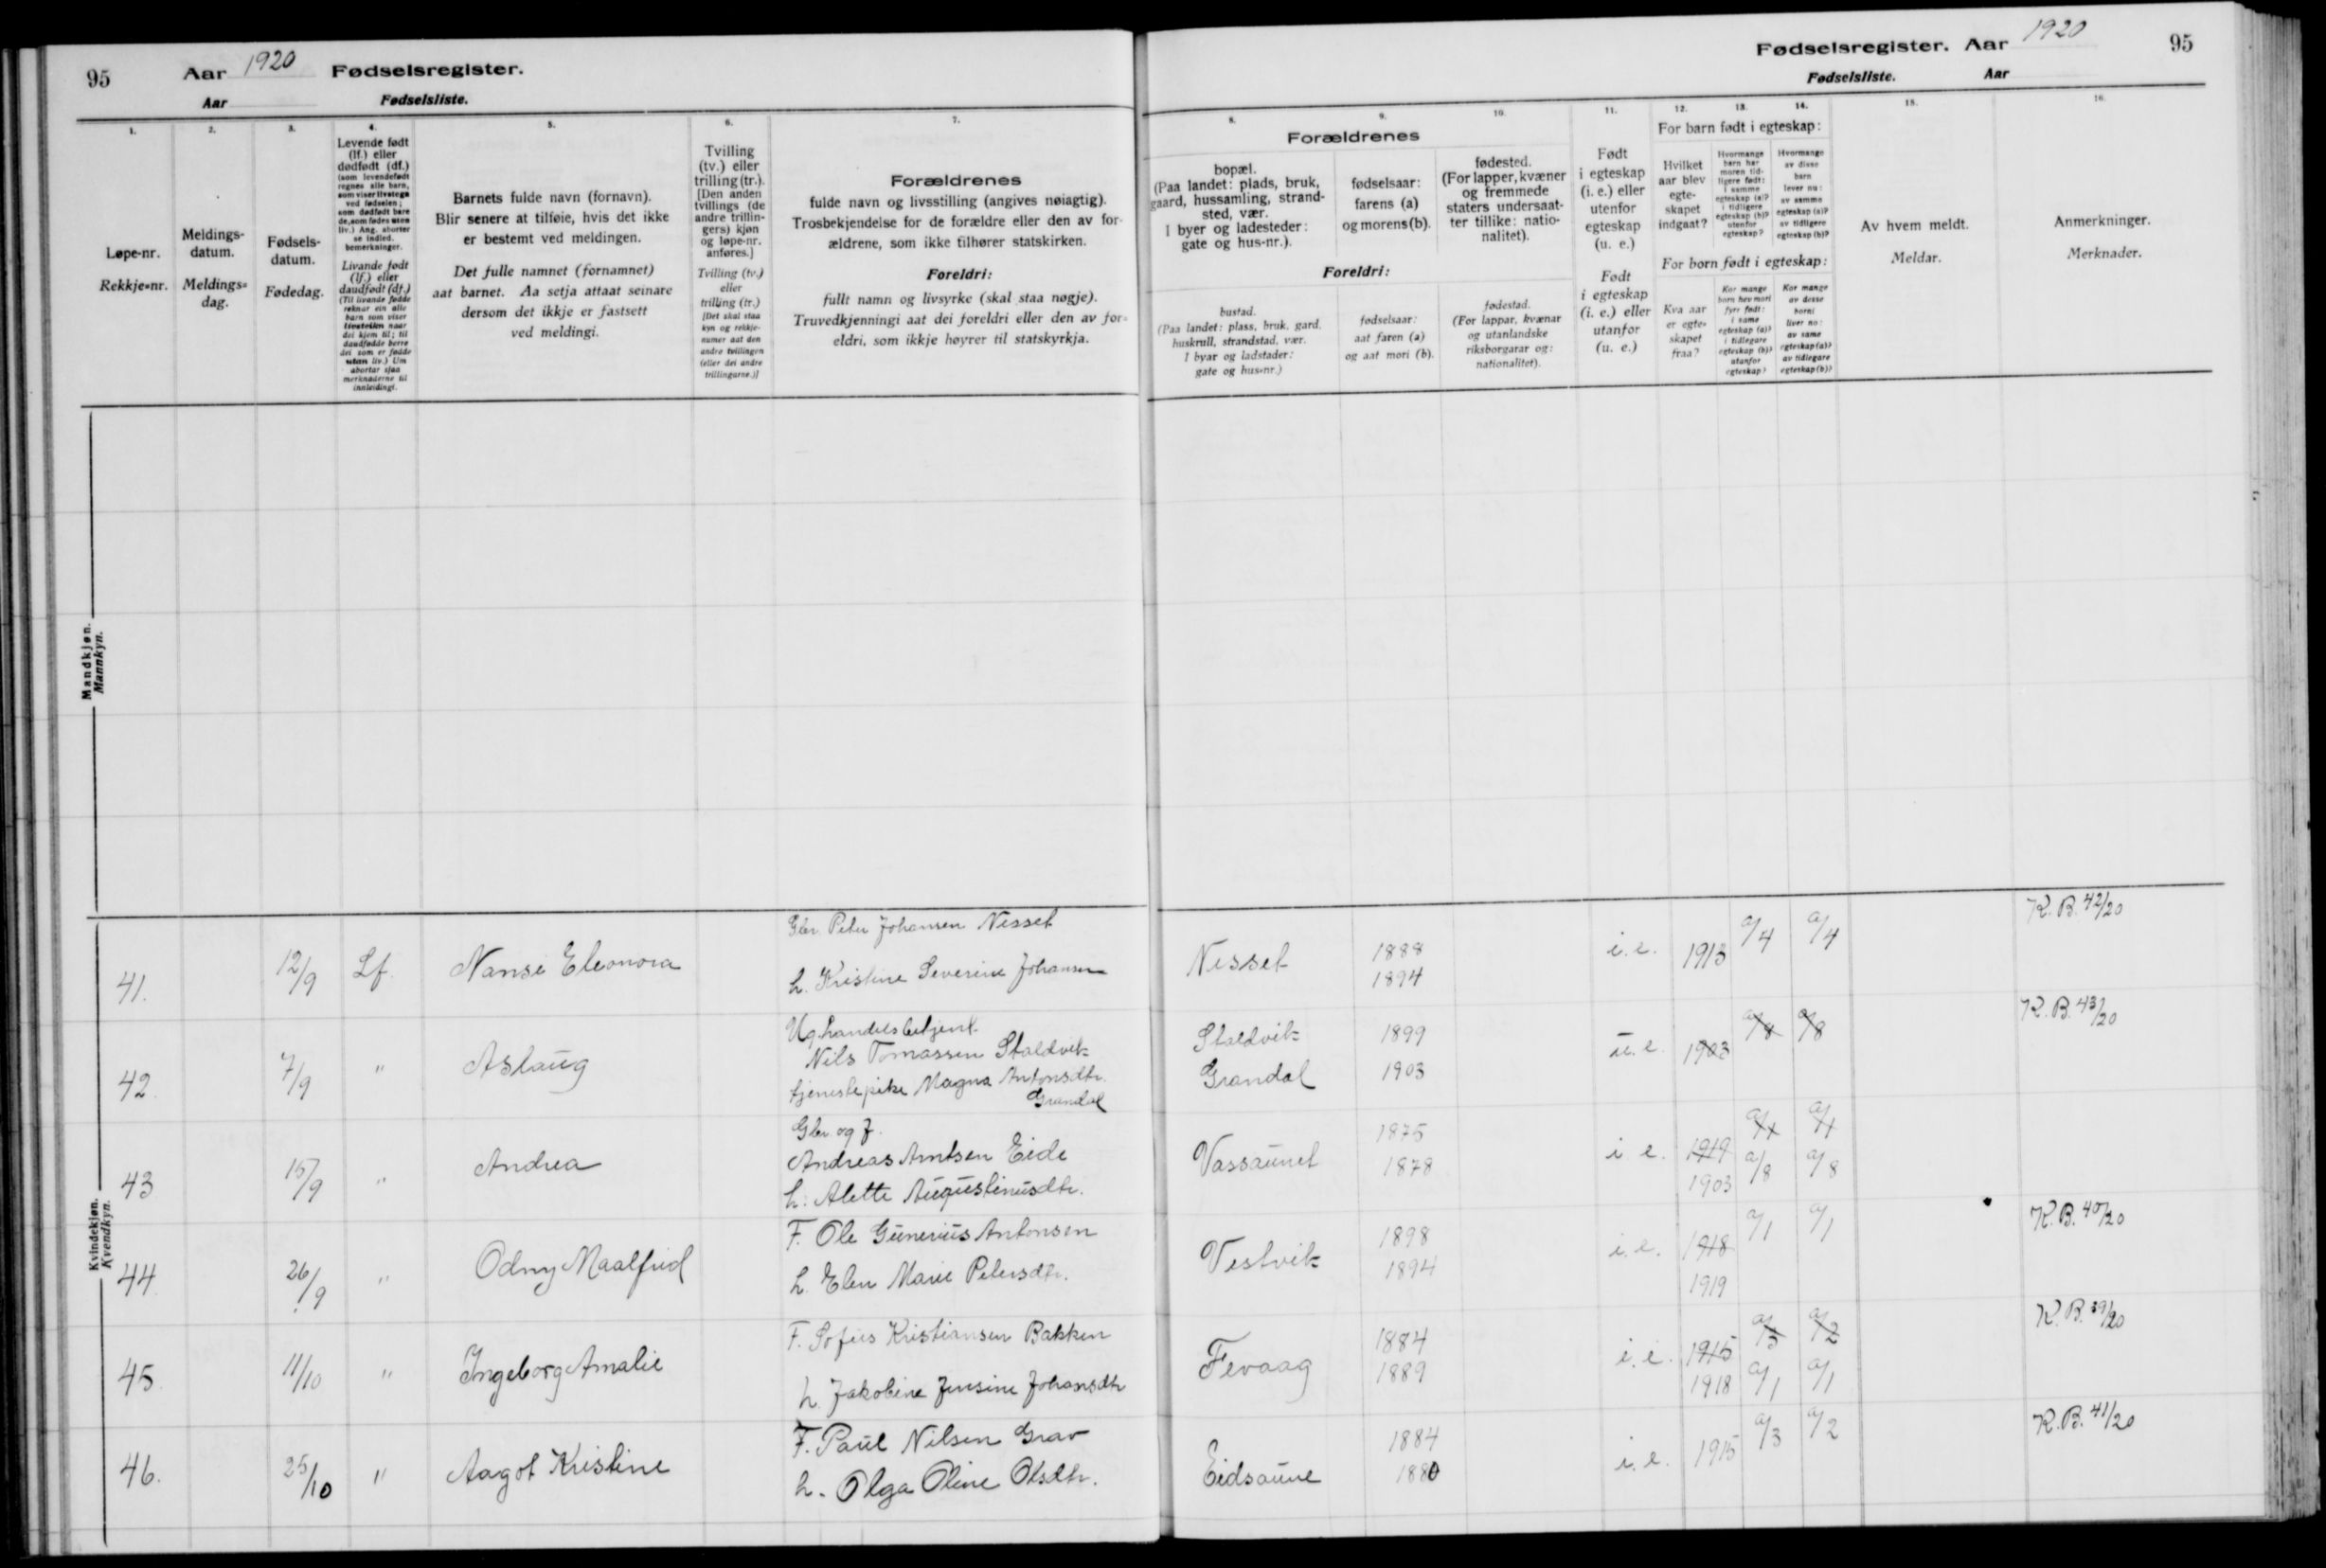 95 Aar 1920 Fødselsregister.
Aar Fødselsliste.
1. 2. 3. 4. 5. 6. 7.
Løpe-nr.
Rekkje-nr.
Meldings-
datum.
Meldings-
dag.
Fødsels-
datum.
Fødedag.
Levende født
(lf.) eller
dødfødt (df.)
(som levendefødt
regnes alle barn,
som viser livstegn
ved fødselen;
som dødfødt bare
de, som fødes uten
liv.) Ang. aborter
se indled.
bemerkninger.
Livande født
(lf.) eller
daudfødt (df.)
(Til livande fødde
reknar ein alle
barn som viser
livsteikn naar
dei kjem til; til
daudfødde berre
dei som er fødde
utan liv.) Um
abortar sjaa
merknaderne til
innleidingi.
Barnets fulde navn (fornavn).
Blir senere at tilføie, hvis det ikke
er bestemt ved meldingen.
Det fulle namnet (fornamnet)
aat barnet. Aa setja attaat seinare
dersom det ikkje er fastsett
ved meldingi.
Tvilling
(tv.) eller
trilling (tr.).
[Den anden
tvillings (de
andre trillin-
gers) kjøn
og løpe-nr.
anføres.]
Tvilling (tv.)
eller
trilling (tr.)
[Det skal staa
kyn og rekkje-
numer aat den
andre tvillingen
(eller dei andre
trillingarne.)]
Forældrenes
fulde navn og livsstilling (angives nøiagtig).
Trosbekjendelse for de forældre eller den av for-
ældrene, som ikke tilhører statskirken.
Foreldri:
fullt namn og livsyrke (skal staa nøgje).
Truvedkjenningi aat dei foreldri eller den av for-
eldri, som ikkje høyrer til statskyrkja.
Mandkjøn.
Mannkyn.
Kvindekjøn.
Kvendkyn.
41. 12/9 Lf. Nansi Eleonora
Gbr. Peter Johansen Nesset
h. Kristine Severine Johansen
42. 7/9 " Aslaug
Ug. handelsbetjent
Nils Tomassen Staldvik
tjenestepike Magna Antonsdtr.
Grandal
43 15/9 " Andrea
Gbr. og f.
Andreas Arntsen Eide
h: Alette Augustinusdtr.
44. 26/9 " Odny Maalfrid
F. Ole Gunerius Antonsen
h. Elen Marie Petersdtr.
45. 11/10 " Ingeborg Amalie
F. Sofus Kristiansen Bakken
h. Jakobine Jensine Johansdtr
46. 25/10 " Aagot Kristine
F. Paul Nilsen Grav
h. Olga Oline Olsdtr.
Fødselsregister. Aar 1920 95
Fødselsliste. Aar
8. 9. 10. 11. 12. 13. 14. 15. 16.
Forældrenes
bopæl.
(Paa landet: plads, bruk,
gaard, hussamling, strand-
sted, vær.
I byer og ladesteder:
gate og hus-nr.).
fødselsaar:
farens (a)
og morens (b).
fødested.
(For lapper, kvæner
og fremmede
staters undersaat-
ter tillike: natio-
nalitet).
Foreldri:
bustad.
(Paa landet: plass, bruk, gard,
huskrull, strandstad, vær.
I byar og ladstader:
gate og hus-nr.)
fødselsaar:
aat faren (a)
og aat mori (b).
fødestad.
(For lappar, kvænar
og utanlandske
riksborgarar og:
nationalitet).
Født
i egteskap
(i. e.) eller
utenfor
egteskap
(u. e.)
Født
i egteskap
(i. e.) eller
utanfor
(u. e.)
For barn født i egteskap:
Hvilket
aar blev
egte-
skapet
indgaat?
Hvormange
barn har
moren tid-
ligere født:
i samme
egteskap (a)?
i tidligere
egteskap (b)?
utenfor
egteskap?
Hvormange
av disse
barn
lever nu:
av samme
egteskap (a)?
av tidligere
egteskap (b)?
For born født i egteskap:
Kva aar
er egte-
skapet
fraa?
Kor mange
born hev mori
fyrr født:
i same
egteskap (a)?
i tidlegare
egteskap (b)?
utanfor
egteskap?
Kor mange
av desse
borni
liver no:
av same
egteskap (a)?
av tidlegare
egteskap (b)?
Av hvem meldt.
Meldar.
Anmerkninger.
Merknader.
Nesset 1888 i.e. 1913 a/4 a/4 K. B. 42/20
1894
Staldvik 1899 u.e. 1903 a/8 a/8 K. B. 43/20
Grandal 1903
Vassaunet 1875 i e. 1919 a/1 a/1
1878 1903 a/8 a/8
Vestvik 1898 i.e. 1918 a/1 a/1 K. B. 40/20
1894 1919
Fevaag 1884 i.e. 1915 a/3 a/2 K. B. 39/20
1889 1918 a/1 a/1
Eidsaune 1884 i.e. 1915 a/3 a/2 K. B. 41/20
1880